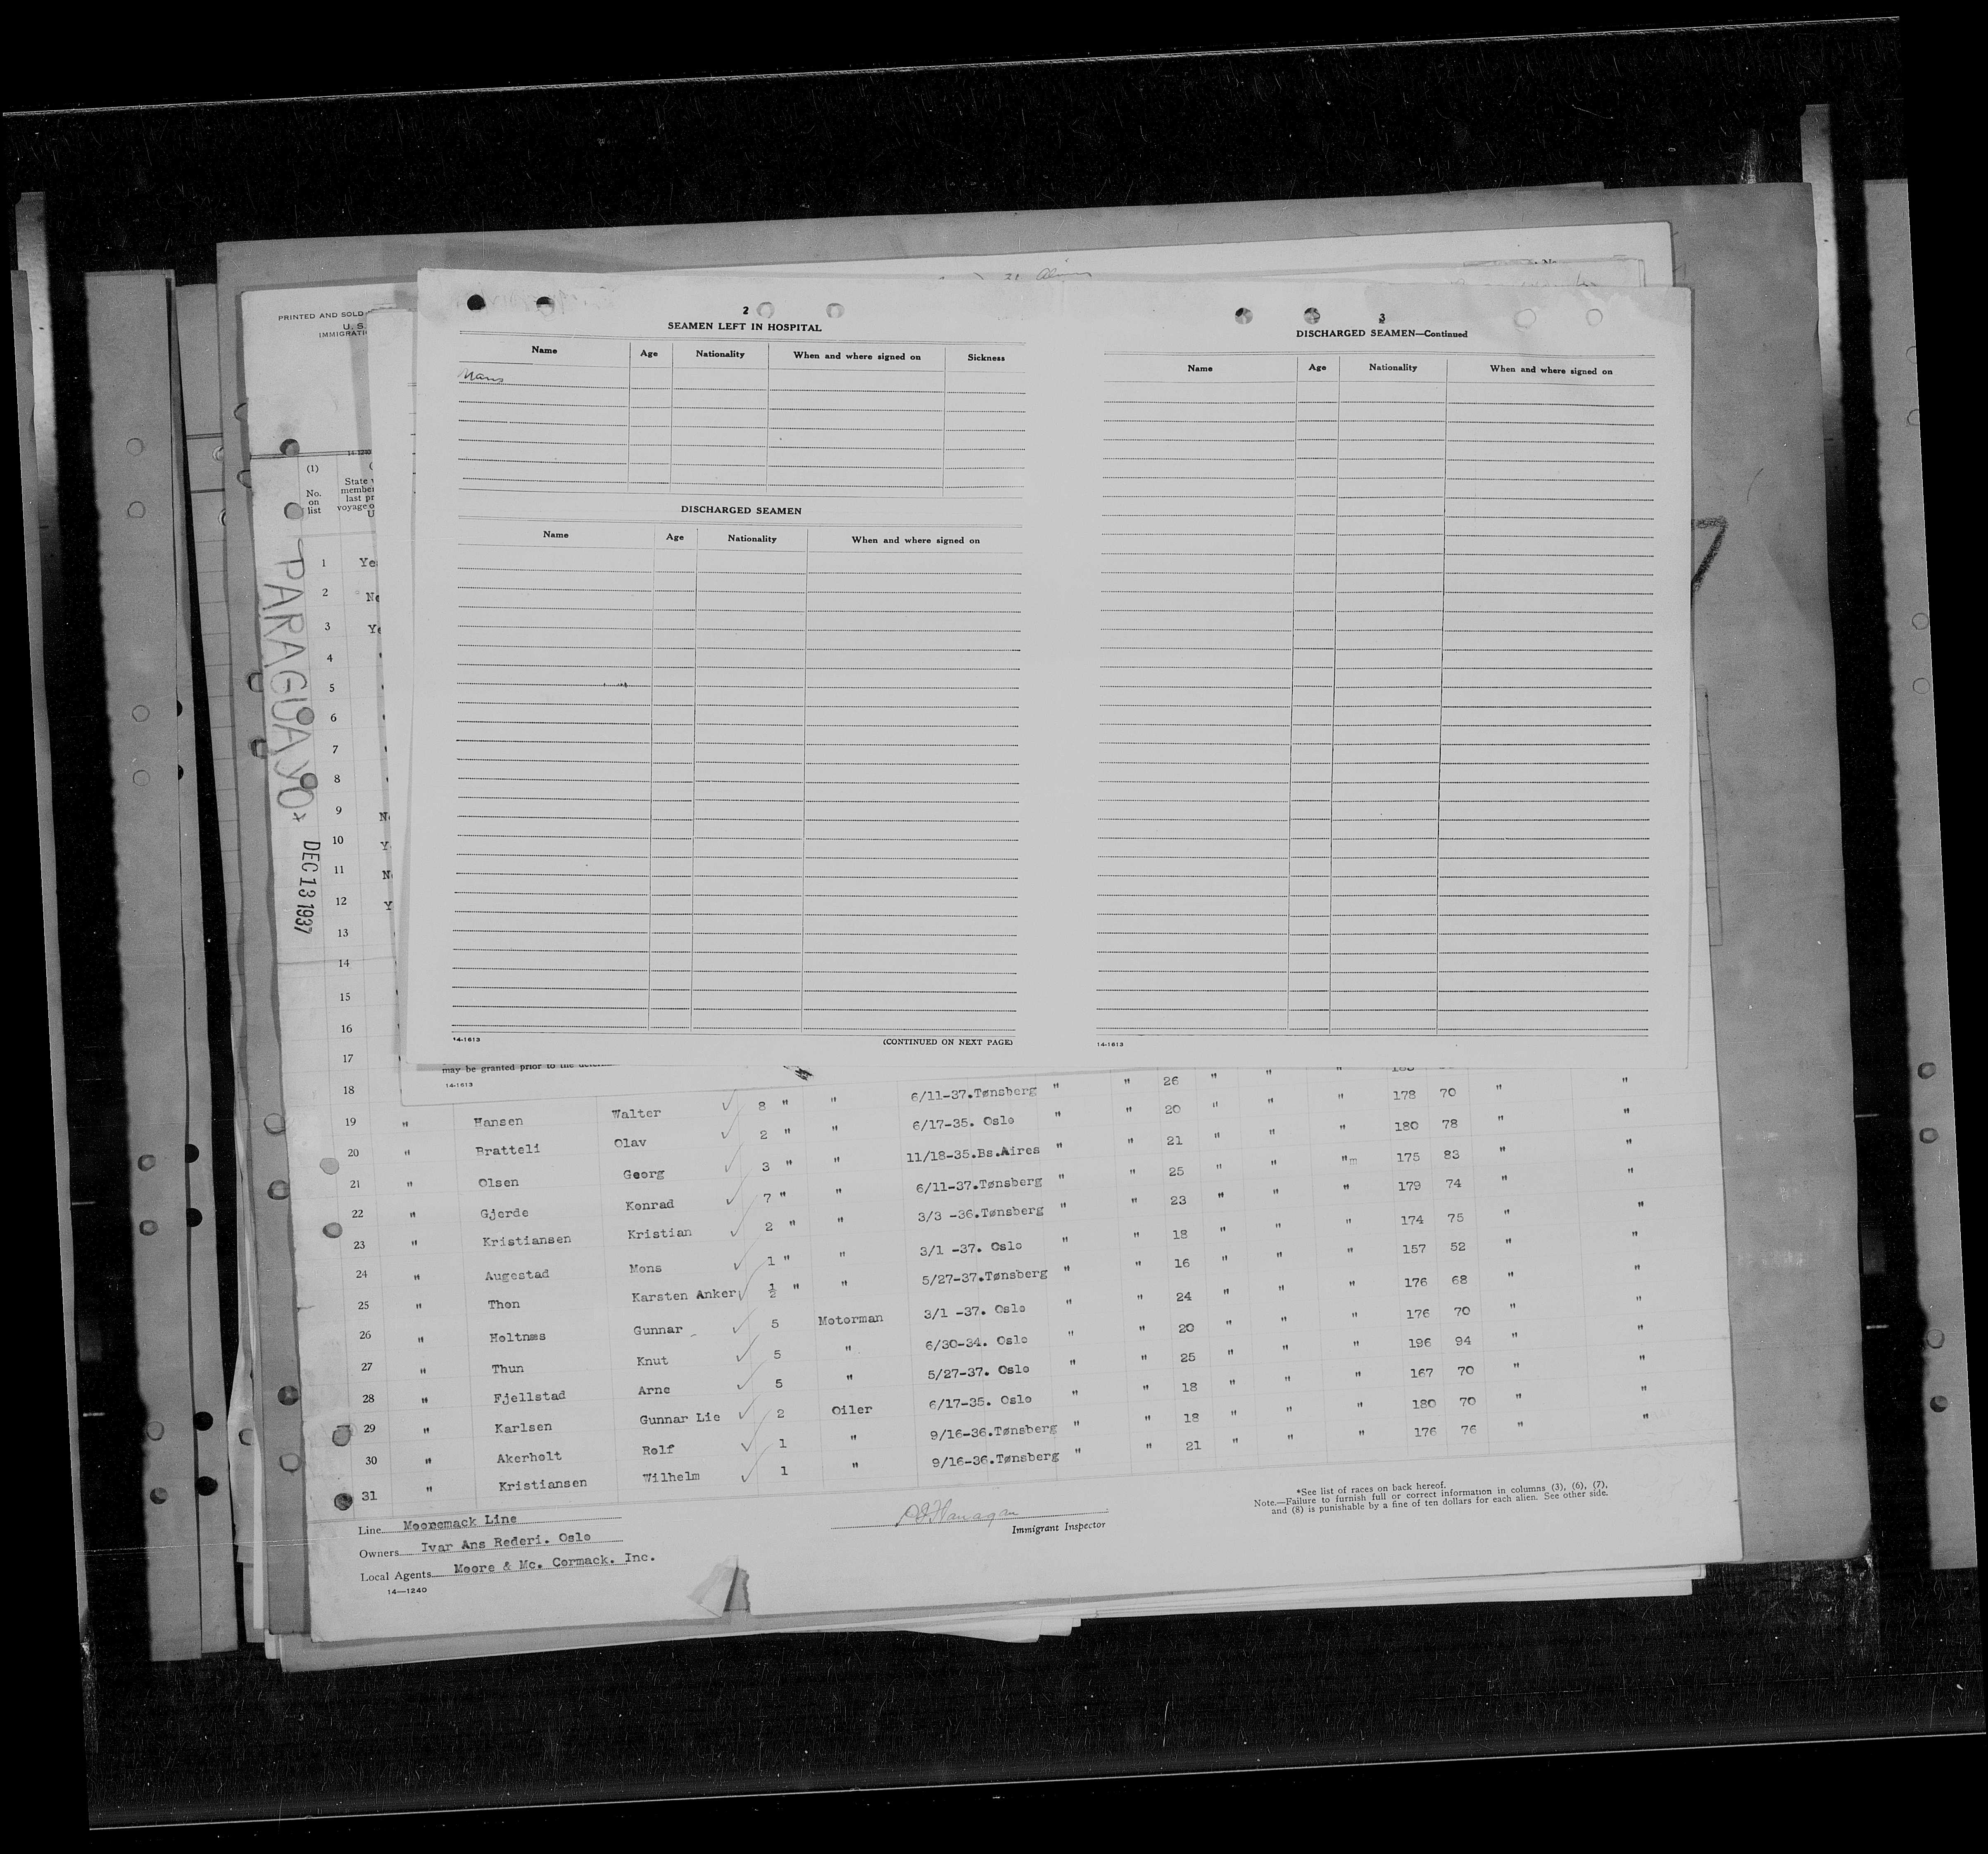 PRINTED AND SOLD
U. S.
IMMIGRATI
21 Aliens
2
SEAMEN LEFT IN HOSPITAL
Name Age Nationality When and where signed on Sickness
None
DISCHARGED SEAMEN
Name Age Nationality When and where signed on
14-1613 (CONTINUED ON NEXT PAGE)
3
DISCHARGED SEAMEN—Continued
Name Age Nationality When and where signed on
14-1613
14-1240
(1)
No. on list
State
member
last pr
voyage o
U
PARAGUAYO
DEC 13 1937
1 Yes
2 No
3 Ye
4 "
5 "
6 "
7 "
8 "
9 No
10 Y
11 No
12 Y
13
14
15 "
16 "
17 "
18
may be granted prior to the
14-1613
19 " Hansen Walter 8 " " 6/11-37.Tønsberg " " 26 " " "
20 " Bratteli Olav 2 " " 6/17-35. Oslo " " 20 " " " 178 70 " "
21 " Olsen Georg 3 " " 11/18-35.Bs.Aires " " 21 " " " 180 78 " "
22 " Gjerde Konrad 7 " " 6/11-37.Tønsberg " " 25 " " "m 175 83 " "
23 " Kristiansen Kristian 2 " " 3/3 -36.Tønsberg " " 23 " " " 179 74 " "
24 " Augestad Mons 1 " " 3/1 -37. Oslo " " 18 " " " 174 75 " "
25 " Thon Karsten Anker ½ " " 5/27-37.Tønsberg " " 16 " " " 157 52 " "
26 " Holtnæs Gunnar 5 Motorman 3/1 -37. Oslo " " 24 " " " 176 68 " "
27 " Thun Knut 5 " 6/30-34. Oslo " " 20 " " " 176 70 " "
28 " Fjellstad Arne 5 " 5/27-37. Oslo " " 25 " " " 196 94 " "
29 " Karlsen Gunnar Lie 2 Oiler 6/17-35. Oslo " " 18 " " " 167 70 " "
30 " Akerholt Rolf 1 " 9/16-36.Tønsberg " " 18 " " " 180 70 " "
31 " Kristiansen Wilhelm 1 " 9/16-36.Tønsberg " " 21 " " " 176 76 " "
Line Mooremack Line
Owners Ivar Ans Rederi. Oslo
Local Agents Moore & Mc. Cormack. Inc.
14—1240
Flanagan
Immigrant Inspector
*See list of races on back hereof.
Note.—Failure to furnish full or correct information in columns (3), (6), (7),
and (8) is punishable by a fine of ten dollars for each alien. See other side.